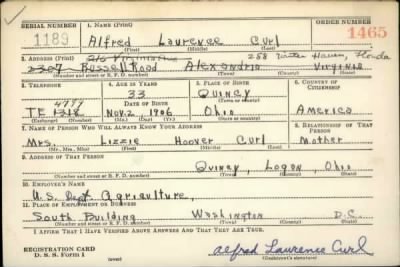 SERIAL NUMBER 1. NAME (Print) ORDER NUMBER
1189 Alfred Laurence Curl 1465
(First) (Middle) (Last)
2. ADDRESS (Print) 216 Virginia Ave 258 Winter Haven, Florida
2307 Russell Road Alexandria Virginia
(Number and street or R. F. D. number) (Town) (County) (State)
3. TELEPHONE 4. AGE IN YEARS 5. PLACE OF BIRTH 6. COUNTRY OF CITIZENSHIP
33 Quincy
4777 DATE OF BIRTH (Town or county)
TE Nov. 2 1906 Ohio America
(Exchange) (Number) (Mo.) (Day) (Yr.) (State or country)
7. NAME OF PERSON WHO WILL ALWAYS KNOW YOUR ADDRESS 8. RELATIONSHIP OF THAT PERSON
Mrs. Lizzie Hoover Curl Mother
(Mr., Mrs., Miss) (First) (Middle) (Last)
9. ADDRESS OF THAT PERSON
Quincy, Logan, Ohio
(Number and street or R. F. D. number) (Town) (County) (State)
10. EMPLOYER'S NAME
U.S. Dept. Agriculture,
11. PLACE OF EMPLOYMENT OR BUSINESS
South Building Washington D.C.
(Number and street or R. F. D. number) (Town) (County) (State)
I AFFIRM THAT I HAVE VERIFIED ABOVE ANSWERS AND THAT THEY ARE TRUE.
REGISTRATION CARD
D. S. S. Form 1 (over) Alfred Laurence Curl
(Registrant's signature)